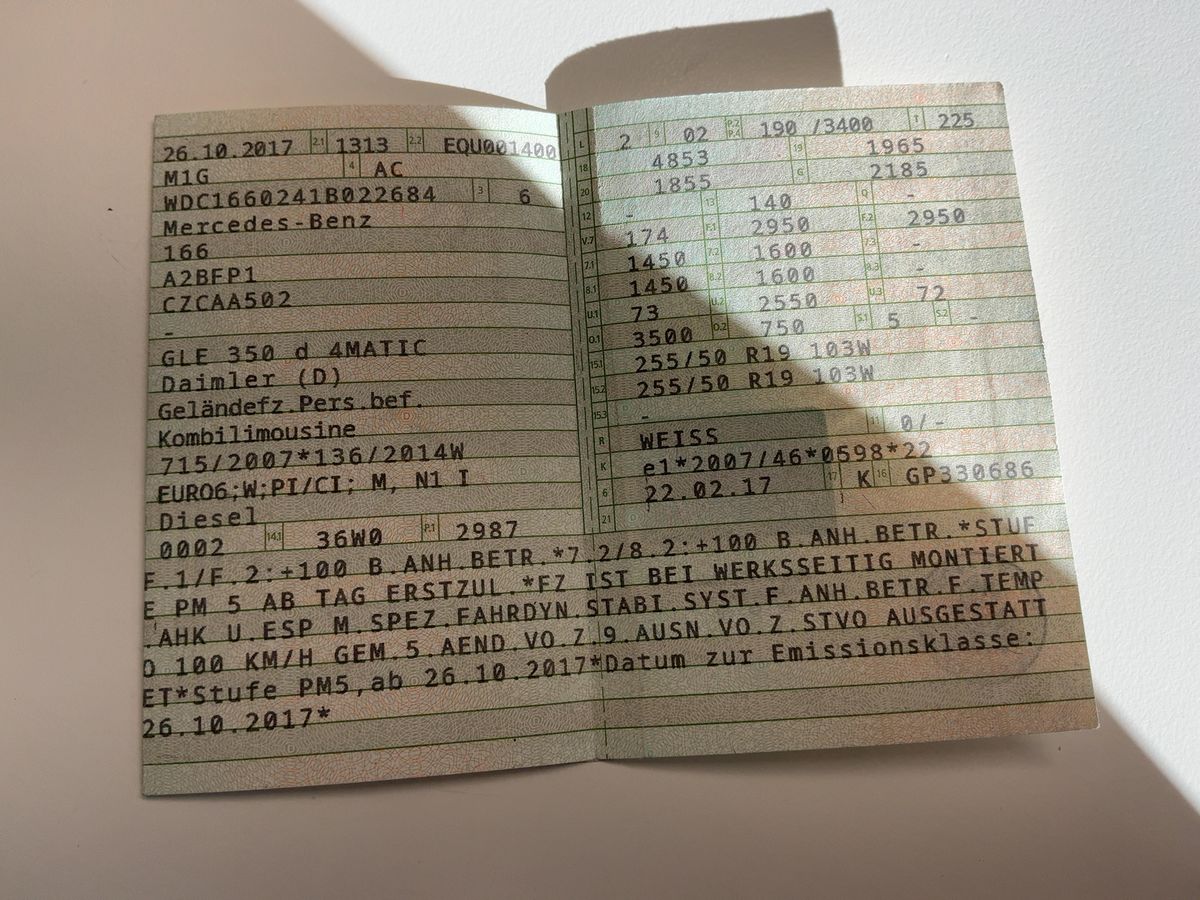 26.10.2017 2.1 1313 2.2 EQU001400
M1G 4 AC
WDC1660241B022684 3 6
Mercedes-Benz
166
A2BFP1
CZCAA502
-
GLE 350 d 4MATIC
Daimler (D)
Geländefz.Pers.bef.
Kombilimousine
715/2007*136/2014W
EURO6;W;PI/CI; M, N1 I
Diesel
0002 14.1 36W0 P.1 2987
L 2 9 02 P.2 P.4 190 /3400 T 225
18 4853 19 1965
20 1855 G 2185
12 - 13 140 Q -
V.7 174 F.1 2950 F.2 2950
7.1 1450 7.2 1600 7.3 -
8.1 1450 8.2 1600 8.3 -
U.1 73 U.2 2550 U.3 72
O.1 3500 O.2 750 S.1 5 S.2 -
15.1 255/50 R19 103W
15.2 255/50 R19 103W
15.3 -
R WEISS 11 0/-
K e1*2007/46*0598*22
6 22.02.17 17 K 16 GP330686
21
F.1/F.2:+100 B.ANH.BETR.*7.2/8.2:+100 B.ANH.BETR.*STUF
E PM 5 AB TAG ERSTZUL.*FZ IST BEI WERKSSEITIG MONTIERT
.AHK U.ESP M.SPEZ.FAHRDYN.STABI.SYST.F.ANH.BETR.F.TEMP
O 100 KM/H GEM.5.AEND.VO.Z.9.AUSN.VO.Z.STVO AUSGESTATT
ET*Stufe PM5,ab 26.10.2017*Datum zur Emissionsklasse:
26.10.2017*